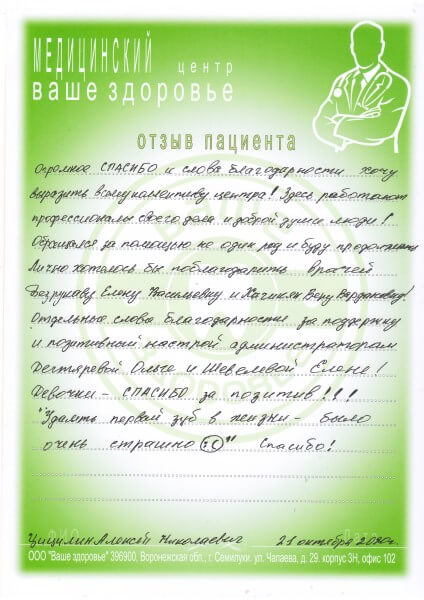 МЕДИЦИНСКИЙ центр
ваше здоровье
отзыв пациента
Огромное СПАСИБО и слова благодарности хочу
выразить всему коллективу центра! Здесь работают
профессионалы своего дела и доброй души люди!
Обращался за помощью не один раз и буду продолжать
Лично хотелось бы поблагодарить врачей
Безрукаву Елену Васильевну и Хачикян Веру Вардановну!
Отдельные слова благодарности за поддержку
и позитивный настрой администраторам
Дегтяревой Ольге и Шевелевой Елене!
Девочки - СПАСИБО за позитив!!!
"Удалять первый зуб в жизни - было
очень страшно :C" Спасибо!
Ф.И.О.
Цицилин Алексей Николаевич 21 октября 2020г.
ООО "Ваше здоровье" 396900, Воронежская обл., г. Семилуки. ул. Чапаева, д. 29. корпус 3Н, офис 102